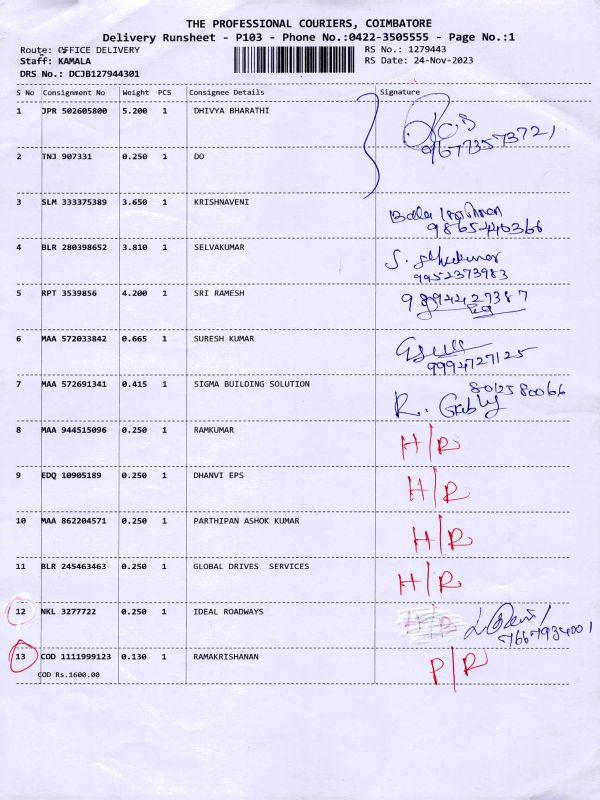 THE PROFESSIONAL COURIERS, COIMBATORE
Delivery Runsheet - P103 - Phone No.:0422-3505555 - Page No.:1
Route: OFFICE DELIVERY RS No.: 1279443
Staff: KAMALA RS Date: 24-Nov-2023
DRS No.: DCJB127944301
S No Consignment No Weight PCS Consignee Details Signature
1 JPR 502605800 5.200 1 DHIVYA BHARATHI
96773573721
2 TNJ 907331 0.250 1 DO
3 SLM 333375389 3.650 1 KRISHNAVENI
9865440366
4 BLR 280398652 3.810 1 SELVAKUMAR
S. Selvakumar
9952373983
5 RPT 3539856 4.200 1 SRI RAMESH
9894427387
6 MAA 572033842 0.665 1 SURESH KUMAR
9994727125
7 MAA 572691341 0.415 1 SIGMA BUILDING SOLUTION
8012580066
8 MAA 944515096 0.250 1 RAMKUMAR H/R
9 EDQ 10905189 0.250 1 DHANVI EPS H/R
10 MAA 862204571 0.250 1 PARTHIPAN ASHOK KUMAR H/R
11 BLR 245463463 0.250 1 GLOBAL DRIVES SERVICES H/R
12 NKL 3277722 0.250 1 IDEAL ROADWAYS H/R
7667934001
13 COD 1111999123 0.130 1 RAMAKRISHANAN P/R
COD Rs.1600.00